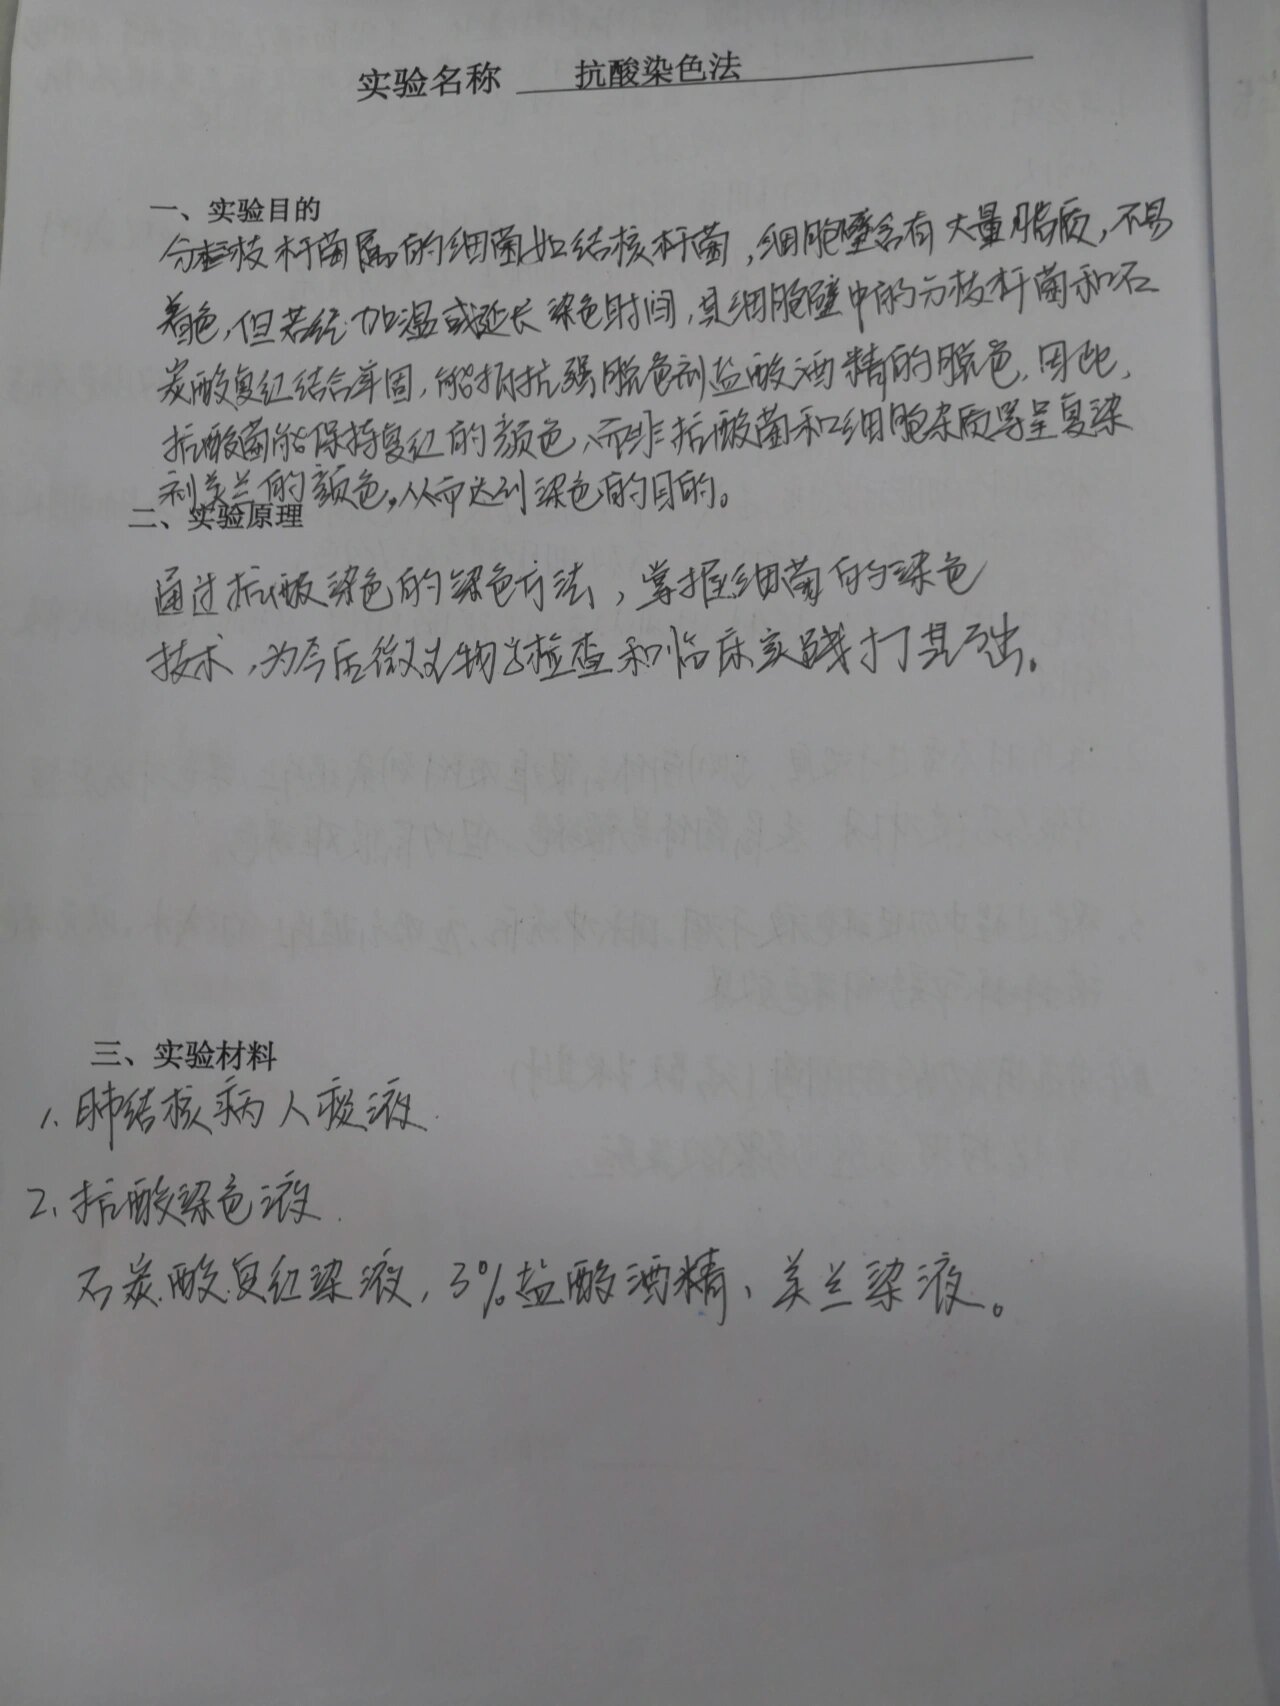 实验名称 抗酸染色法
一、实验目的
分枝杆菌属的细菌如结核杆菌,细胞壁含有大量脂质,不易
着色,但若经加温或延长染色时间,其细胞壁中的分枝杆菌和石
炭酸复红结合牢固,能抵抗强脱色剂盐酸酒精的脱色.因此,
抗酸菌能保持复红的颜色,而非抗酸菌和细胞杂质等呈复染
剂美兰的颜色,从而达到染色的目的。
二、实验原理
通过抗酸染色的染色方法,掌握细菌的染色
技术,为今后微生物学检查和临床实践打基础。
三、实验材料
1、肺结核病人痰液.
2、抗酸染色液.
石炭酸复红染液,3%盐酸酒精、美兰染液。